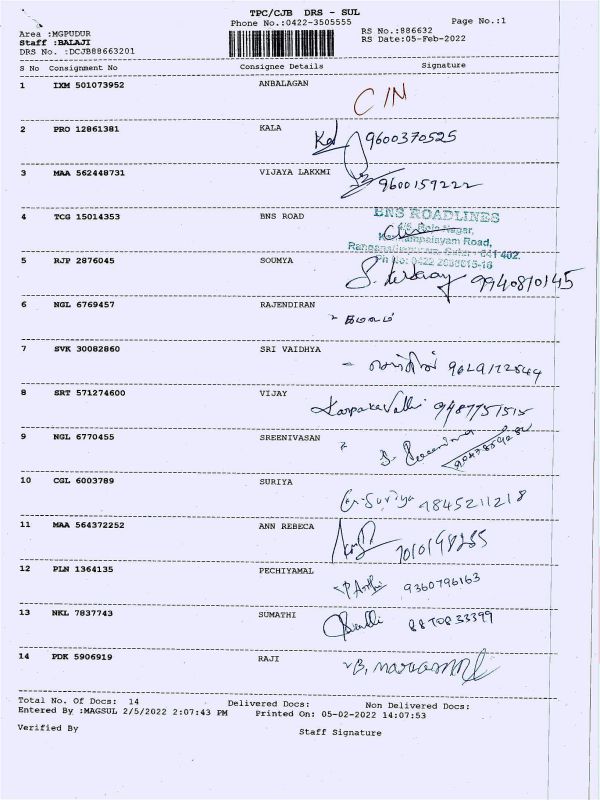 TPC/CJB DRS - SUL
Phone No.:0422-3505555
Page No.:1
Area :MGPUDUR
RS No.:886632
Staff :BALAJI
RS Date:05-Feb-2022
DRS No. :DCJB88663201
S No Consignment No Consignee Details Signature
1 IXM 501073952 ANBALAGAN
C/N
2 PRO 12861381 KALA
9600370525
3 MAA 562448731 VIJAYA LAKXMI
9600159222
4 TCG 15014353 BNS ROAD
BNS ROADLINES
5 RJP 2876045 SOUMYA
9940810145
6 NGL 6769457 RAJENDIRAN
7 SVK 30082860 SRI VAIDHYA
8 SRT 571274600 VIJAY
Karpakavalli 9487751515
9 NGL 6770455 SREENIVASAN
10 CGL 6003789 SURIYA
G. Suriya 9845211218
11 MAA 564372252 ANN REBECA
12 PLN 1364135 PECHIYAMAL
9360796163
13 NKL 7837743 SUMATHI
8870833399
14 PDK 5906919 RAJI
Total No. Of Docs: 14 Delivered Docs: Non Delivered Docs:
Entered By :MAGSUL 2/5/2022 2:07:43 PM Printed On: 05-02-2022 14:07:53
Verified By
Staff Signature